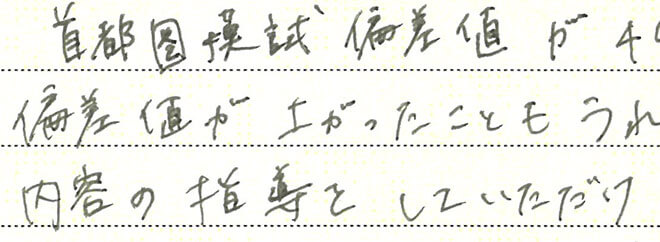 首都圏模試偏差値が4
偏差値が上がったこともうれ
内容の指導をしていただけ